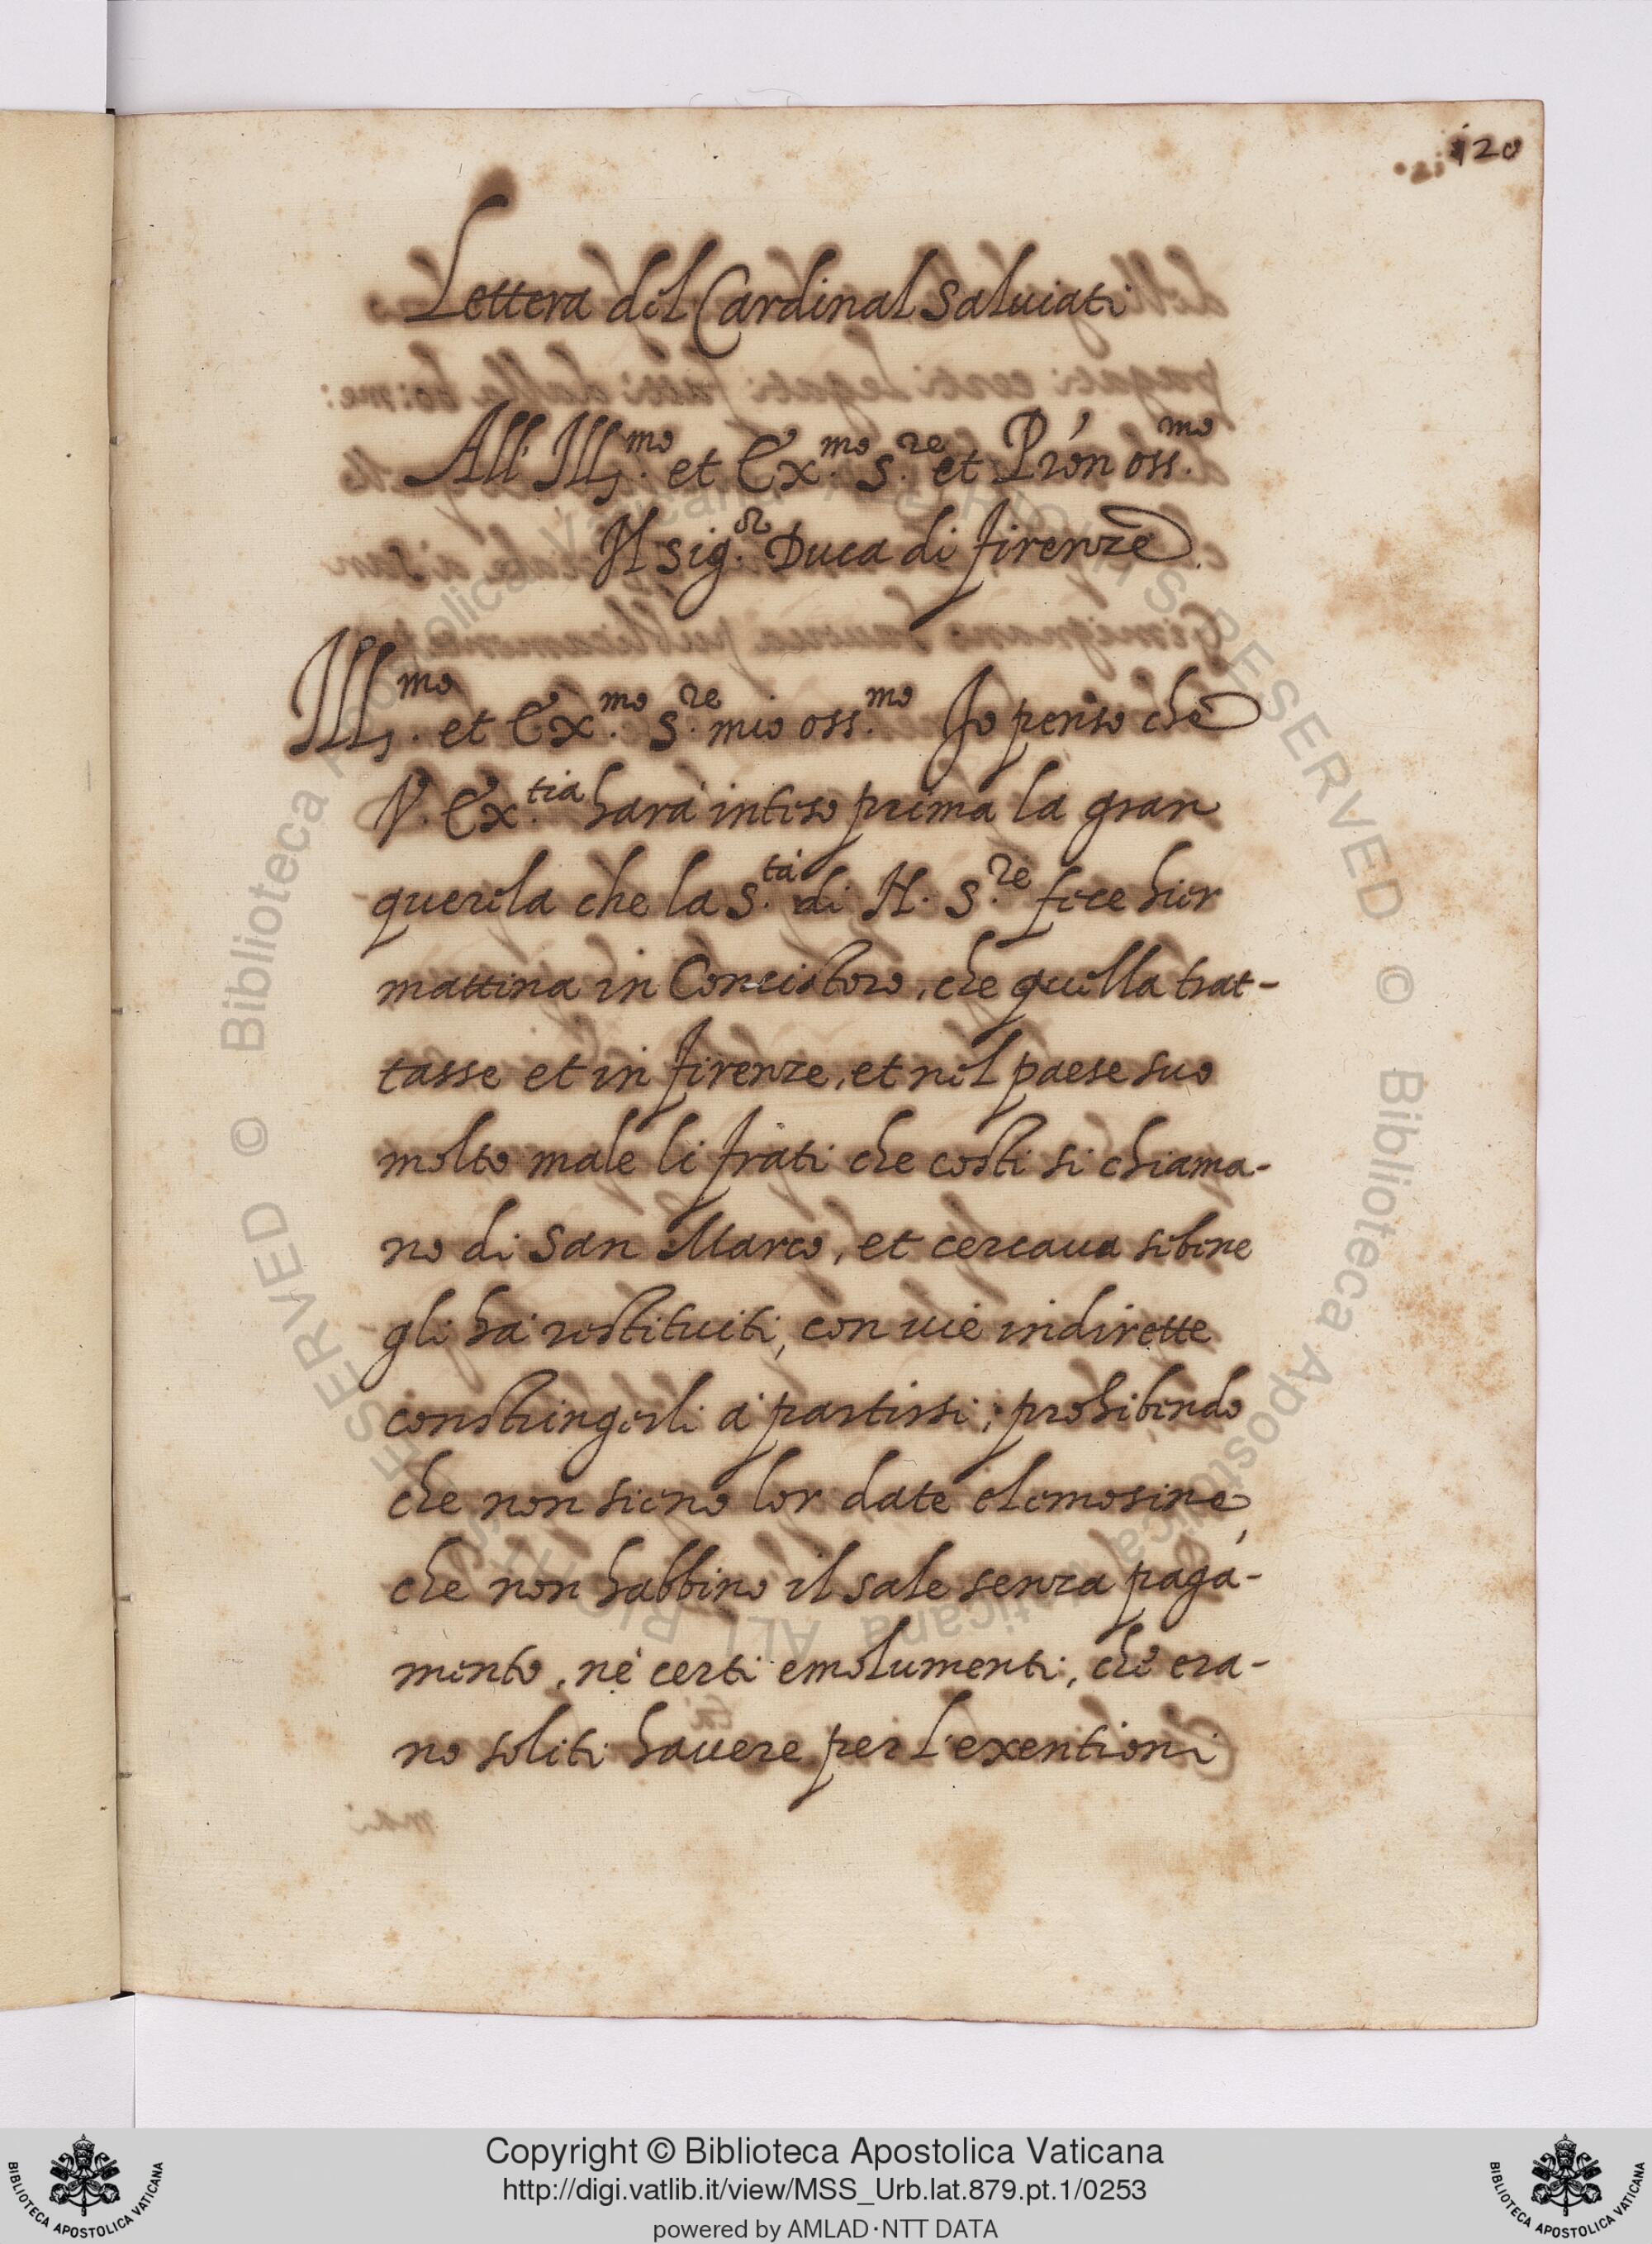 120
Lettera del Cardinal Saluiati
All' Ill.mo et Ecc.mo S.re et P'ron oss.mo
Il sig.or Duca di firenze
Ill.mo et Ex.mo S.re mio oss.mo Io penso che
V. Ex.tia harà inteso prima la gran
querela che la S.tà di N. S.re fece hier
mattina in Concistoro, che quella trat-
tasse et in firenze, et nel paese suo
molto male li frati che costi si chiama-
no di San Marco, et cercaua sebene
gli hà restituiti, con uie indirette
constringerli à partirsi; prohibendo
che non sieno lor date elemosine,
che non habbino il sale senza paga-
mento, nè certi emolumenti, che era-
no soliti hauere per l'exentioni
© Biblioteca Apostolica Vaticana ALL RIGHTS RESERVED
Copyright © Biblioteca Apostolica Vaticana
http://digi.vatlib.it/view/MSS_Urb.lat.879.pt.1/0253
powered by AMLAD·NTT DATA
BIBLIOTECA APOSTOLICA VATICANA
BIBLIOTECA APOSTOLICA VATICANA